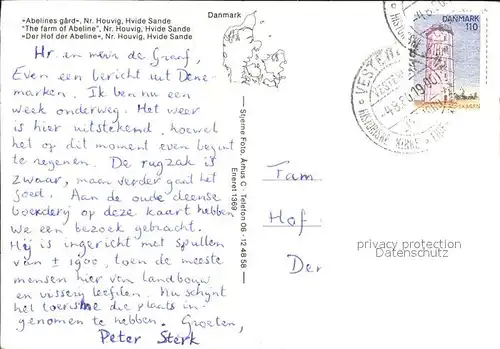 »Abelines gård«, Nr. Houvig, Hvide Sande
"The farm of Abeline", Nr. Houvig, Hvide Sande
»Der Hof der Abeline«, Nr. Houvig, Hvide Sande
Danmark
DANMARK
110
Hr. en mevr. de Graaf,
Even een bericht uit Dene-
marken. Ik ben nu een
week onderweg. Het weer
is hier uitstekend, hoewel
het op dit moment even begint
te regenen. De rugzak is
zwaar, maar verder gaat het
goed. Aan de oude deense
boerderij op deze kaart hebben
we een bezoek gebracht.
Hij is ingericht met spullen
van ± 1900, toen de meeste
mensen hier van landbouw
en visserij leefden. Nu schijnt
het toerisme die plaats in-
genomen te hebben. Groeten,
Peter Sterk
Stjerne Foto, Århus C · Telefon 06 - 12 48 58
Eneret 1369
Fam
Hof
Der
privacy protection
Datenschutz